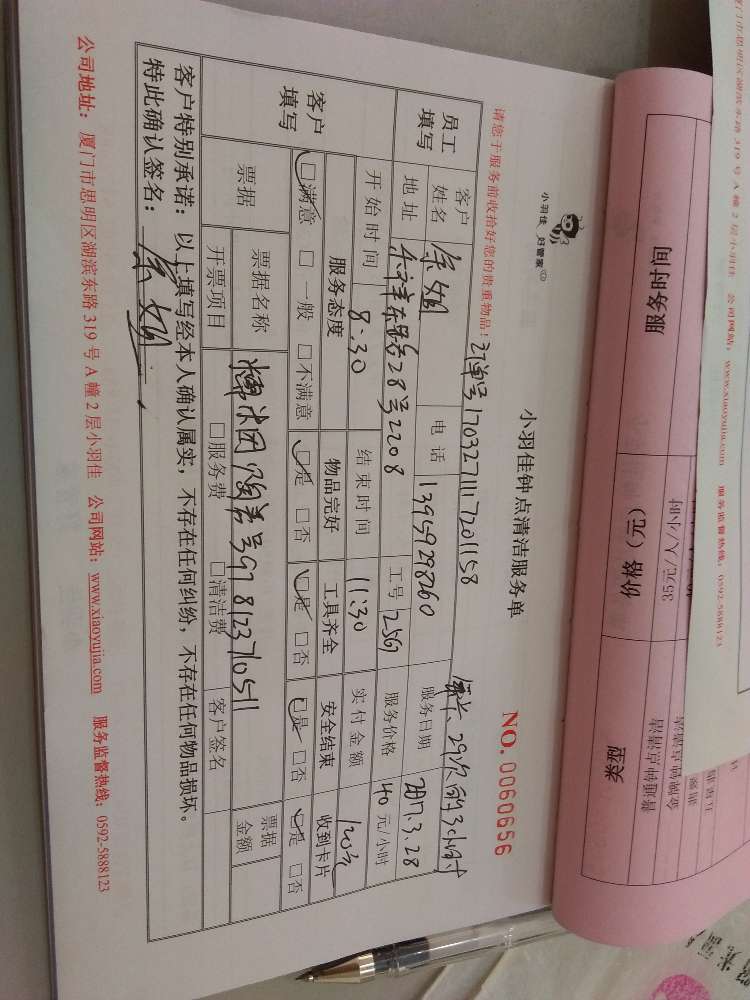 小羽佳 好管家
小羽佳钟点清洁服务单
NO. 0060656
请您于服务前收拾好您的贵重物品!
订单号17032711117201158
29次 3小时
员工填写
客户姓名 余姐 电话 13959298260 服务日期 2017.3.28
地址 28号2208 工号 256 服务价格 40元/小时
开始时间 8:30 结束时间 11:30 实付金额 120元
客户填写
服务态度 物品完好 工具齐全 安全结束 收到卡片
☑满意 □一般 □不满意 ☑是 □否 ☑是 □否 ☑是 □否 ☑是 □否
票据 票据名称 号 8123710511 票据金额
开票项目 □服务费 □清洁费 客户签名
客户特别承诺:以上填写经本人确认属实,不存在任何纠纷,不存在任何物品损坏。
特此确认签名:
公司地址:厦门市思明区湖滨东路319号A幢2层小羽佳 公司网站:www.xiaoyujia.com 服务监督热线:0592-5888123
类型 价格(元) 服务时间
普通钟点清洁 35元/人/小时
厦门市思明区湖滨东路319号A幢2层小羽佳 公司网站:www.xiaoyujia.com 服务监督热线:0592-5888123